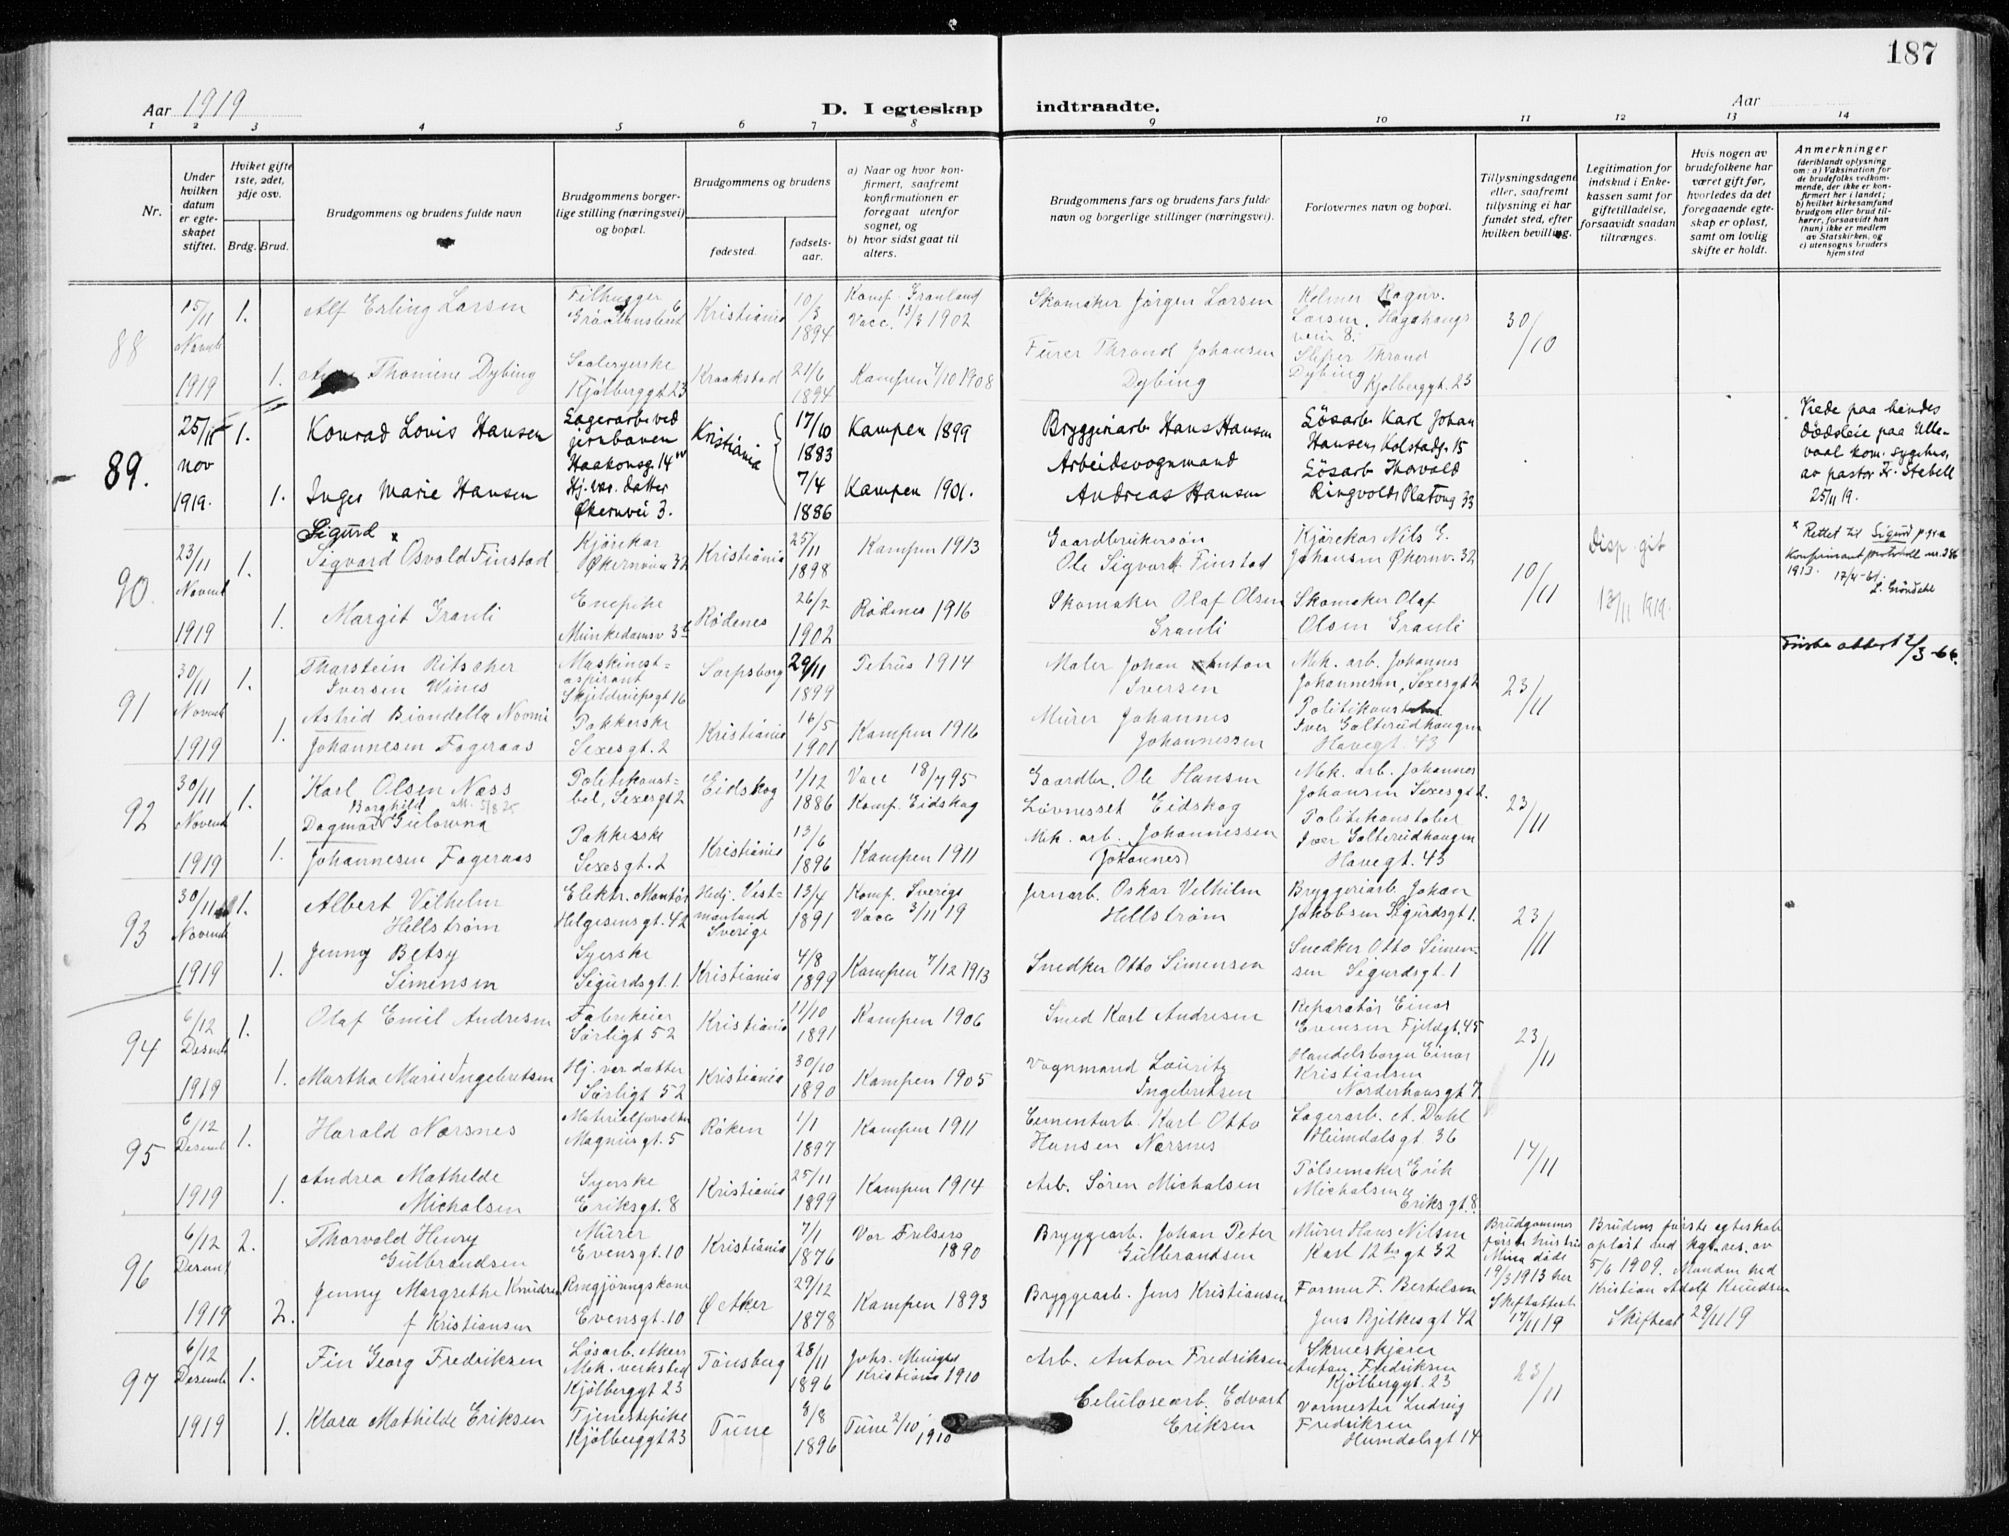 187
Aar 1919
D. I egteskap indtraadte.
Aar
1 2 3 4 5 6 7 8 9 10 11 12 13 14
Nr.
Under hvilken datum er egteskapet stiftet.
Hviket gifte 1ste, 2det, 3dje osv.
Brdg. Brud.
Brudgommens og brudens fulde navn
Brudgommens borgerlige stilling (næringsvei) og bopæl.
Brudgommens og brudens
fødested.
fødselsaar.
a) Naar og hvor konfirmert, saafremt konfirmationen er foregaat utenfor sognet, og
b) hvor sidst gaat til alters.
Brudgommens fars og brudens fars fulde navn og borgerlige stillinger (næringsvei).
Forlovernes navn og bopæl.
Tillysningsdagene eller, saafremt tillysning ei har fundet sted, efter hvilken bevilling.
Legitimation for indskud i Enkekassen samt for giftetilladelse, forsaavidt saadan tiltrænges.
Hvis nogen av brudefolkene har været gift før, hvorledes da det foregaaende egteskap er opløst, samt om lovlig skifte er holdt.
Anmerkninger
(deriblandt oplysning om: a) Vaksination for de brudefolks vedkommende, der ikke er konfirmert her i landet;
b) hvilket kirkesamfund brudgom eller brud tilhører, forsaavidt han (hun) ikke er medlem av Statskirken, og
c) utensogns bruders hjemsted
88
15/11 Novemb 1919
1. Alf Erling Larsen
Filhugger
Kristiania
10/3 1894
Konf. Grønland
Vacc. 13/3 1902
Skomaker Jørgen Larsen
30/10
1. Thomine Dybing
Kjølberggt 23
Kraakstad
21/6 1894
Kampen 4/10 1908
Furer Thrond Johansen
Dybing
Sliper Thrond
Dybing Kjølberggt. 23
89.
25/11 nov 1919.
1. Konrad Lovis Hansen
Lagerarb ved
jernbanen
Haakonsg. 14
Kristiania
17/10 1883
Kampen 1899
Bryggeriarb Hans Hansen
Løsarb Karl Johan
Hansen, Kolstadg. 15
Viede paa hendes
dødsleie paa Ulle-
vaal kom. sygehus,
av pastor Fr. Stabell
25/11 19.
1. Inger Marie Hansen
Hj. vær. datter
Økernvei 3.
7/4 1886
Kampen 1901.
Arbeidsvognmand
Andreas Hansen
Løsarb Thorvald
Ringvold, Platoug 33
90.
23/11 Novemb 1919
Sigurd x
1. Sigvard Osvald Finstad
Kjørekar
Økernveien 32
Kristiania
25/11 1898
Kampen 1913
Gaardbrukersøn
Ole Sigvart Finstad
Kjørekar Nils G.
Johansen Økernv. 32
10/11
Disp. git
13/11 1919.
x Rettet til Sigurd p gra
Konfirmantprotokoll nr. 386
1913. 17/4-61.
L. Grøndahl
1. Margit Grauli
Enepike
Munkedamsv 3
Rødenes
26/2 1902
Rødenes 1916
Skomaker Olaf Olsen
Grauli
Skomaker Olaf
Olsen Grauli
91
30/11 Novemb 1919
1. Tharstein Ritscher
Iversen Wines
Maskinist-
aspirant
Sarpsborg
29/11 1899
Petrus 1914
Maler Johan Anton
Iversen
Mek. arb. Johannes
Johannesen, Sexesgt 2
23/11
1. Astrid Biondella Noomi
Johannesen Fageraas
Pakkerske
Sexesgt. 2
Kristiania
16/5 1901
Kampen 1916
Murer Johannes
Johannessen
Politikonst
Iver Galterudhaugen
Havegt. 43
92
30/11 Novemb 1919
1. Karl Olsen Næss
Politikonst-
bel, Sexesgt 2
Eidskog
1/12 1886
Vacc 18/7 95
Konf. Eidskog
Gaardbr. Ole Hansen
Løvnesset Eidskog
Mek. arb. Johannes
Johansen Sexesgt 2.
23/11
Borghild
1. Dagmar Gulowna
Johannesen Fageraas
Pakkerske
Sexesgt. 2
Kristiania
13/6 1896
Kampen 1911
Mek. arb. Johannessen
Johannes
Politikonstabel
Iver Galterudhaugen
Havegt. 43
93
30/11 Novemb 1919
1. Albert Vilhelm
Hellstrøm
Elektr. Montør
Helgesensgt. 42
Hedj. Vest-
manland
Sverige
13/4 1891
Konf. Sverige
Vacc 3/11 19
Jernarb. Oskar Vilhilm
Hellstrøm
Bryggeriarb. Johan
Jakobsen Sigurdsgt 1.
23/11
1. Jenny Betsy
Simensen
Syerske
Sigurdsgt. 1.
Kristiania
4/8 1899
Kampen 7/12 1913
Snedker Otto Simensen
Snedker Otto Simen-
sen Sigurdsgt. 1
94
6/12 Desemb 1919
1. Olaf Emil Andresen
Fabrikeier
Sørligt 52
Kristiania
11/10 1891
Kampen 1906
Smed Karl Andresen
Reparatør Einar
Evensen Fjeldgt. 45
23/11
1. Martha Marie Ingebretsen
Hj. vær datter
Sørligt 52
Kristiania
30/10 1890
Kampen 1905
Vognmand Lauritz
Ingebretsen
Handelsborger Einar
Kristiansen
Norderhovsgt 7
95
6/12 Desemb 1919
1. Harald Nærsnes
Materialforvalter
Magnusgt. 5
Røken
1/1 1897
Kampen 1911
Cementarb. Karl Otto
Hansen Nærsnes
Lagerarb. A. Dahl
Heimdalsgt 36
14/11
1. Andrea Mathilde
Michalsen
Syerske
Eriksgt. 8
Kristiania
25/11 1899
Kampen 1914
Arb. Søren Michalsen
Pølsemaker Erik
Michalsen
Eriksgt. 8
96
6/12 Desemb 1919
2. Thorvald Henry
Gulbrandsen
Murer
Evensgt. 10
Kristiania
7/1 1876
Vor Frelsers
1890
Bryggearb. Johan Peter
Gulbrandsen
Murer Hans Nilsen
Karl 12tes gt 32
Brudgommens
første hustru
Mina døde
19/3 1913 her
Skifteattest
17/11 19
Brudens første egteskab
opløst ved kgl. res. av
5/6 1909. Manden hed
Kristian Adolf Knudsen
Skifteat 29/11 19
2. Jenny Margrethe Knudsen
f Kristiansen
Rengjøringskone
Evensgt. 10
29/12 1878
Kampen 1893
Bryggearb. Jens Kristiansen
Former F. Bertelsen
Jens Bjelkesgt 42
97
6/12 Desemb 1919
1. Fin Georg Fredriksen
Løsarb. Akers
Mek. verksted
Kjølberggt 23
Tønsberg
28/11 1896
Johs. Menighet
Kristiania 1910
Arb. Anton Fredriksen
Skrueskjærer
Anton Fredriksen
Kjølberggt. 23
23/11
1. Klara Mathilde Eriksen
Tjenestepike
Kjølberggt 23
Tune
8/8 1896
Tune 2/10 1910
Celuloseearb. Edvart
Eriksen
Vormester Ludvig
Fredriksen
Humdalsgt 14